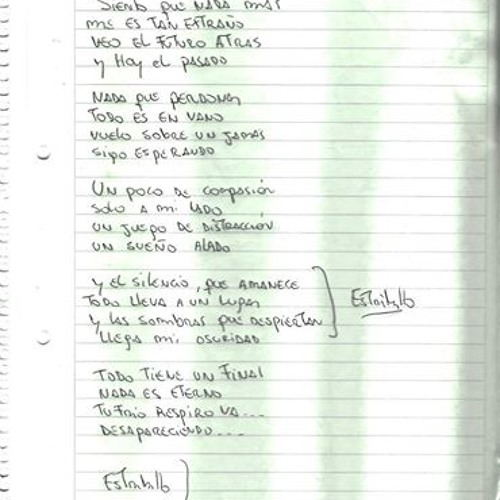 Siento que NADA MAS
ME ES TAN EXTRAÑO
VEO EL FUTURO ATRAS
y Hoy el PASADO
NADA QUE PERDONES
TODO ES EN VANO
VUELO SOBRE UN JAMAS
SIGO ESPERANDO
UN POCO DE COMPASIÓN
SOLO A MI LADO
UN JUEGO DE DISTRACCIÓN
UN SUEÑO ALADO
y EL SILENCIO, QUE AMANECE
TODO LLEVA A UN LUGAR
Y LAS SOMBRAS QUE DESPIERTAN
LLEGA MI OSCURIDAD
Estribillo
TODO TIENE UN FINAL
NADA ES ETERNO
TU FRIO RESPIRO VA...
DESAPARECIENDO...
Estribillo